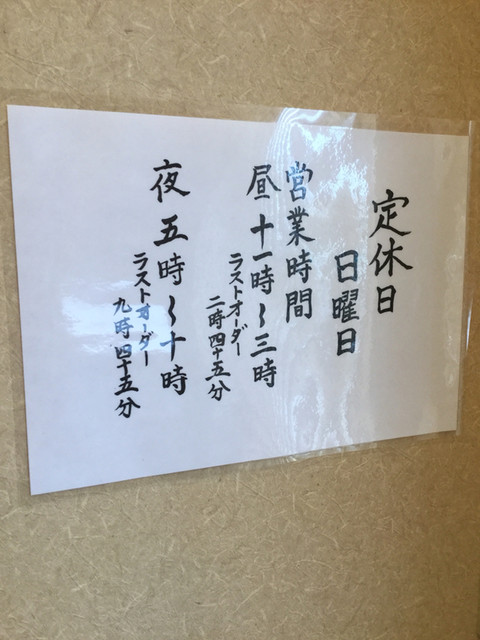 定休日
日曜日
営業時間
昼十一時〜三時
ラストオーダー
二時四十五分
夜五時〜十時
ラストオーダー
九時四十五分